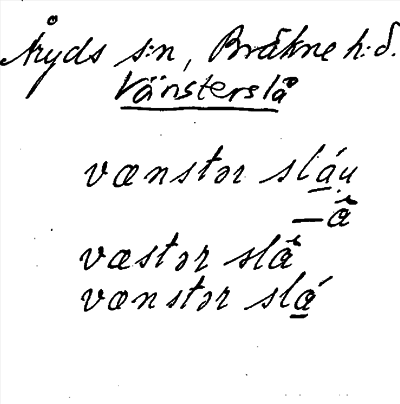 Åryds s:n, Bräkne h:d.
Vänsterslå
vænstər slá̱u̩
—å̀
væstər slå̀
vænstər slá̱